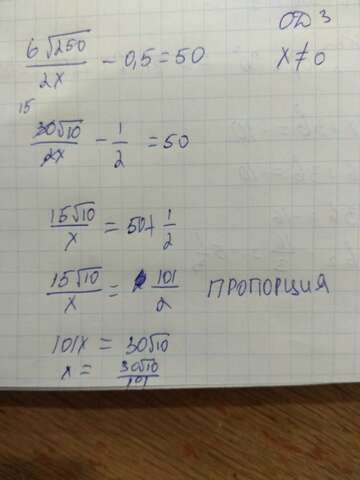 ОДЗ
6√250/2x − 0,5 = 50
x ≠ 0
15
30√10/2x − 1/2 = 50
15√10/x = 50 + 1/2
15√10/x = 101/2 ПРОПОРЦИЯ
101x = 30√10
x = 30√10/101